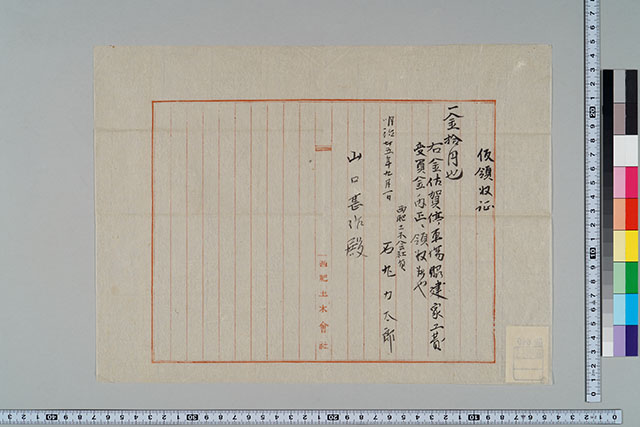 仮領収証
一金拾円也
右金佐賀停車場脇建家工費
受負金内正ニ領収候也
明治廿五年九月一日
西肥土木会社員
石丸力太郎
山口甚作殿
西肥土木會社